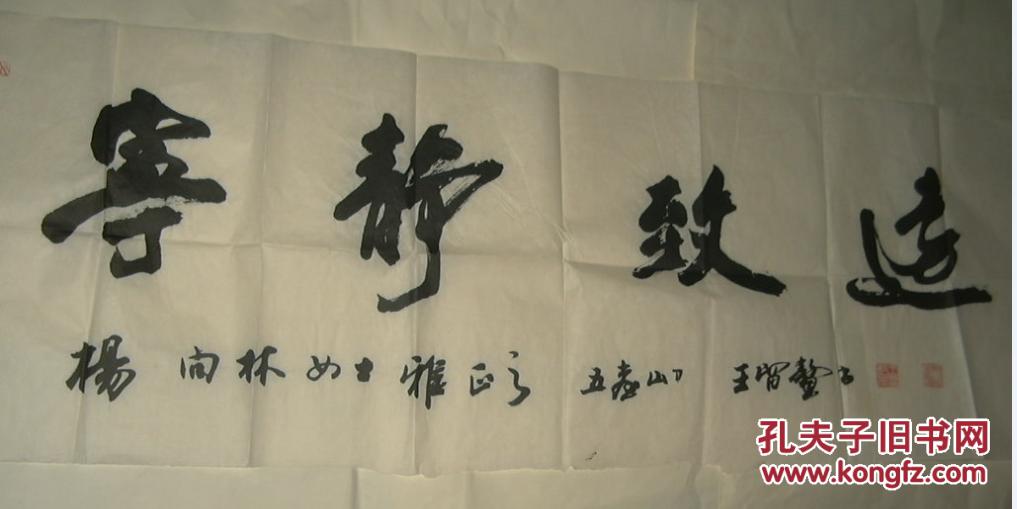 寧静致遠
楊向林女士雅正之 五台山 王留鳌
孔夫子旧书网
www.kongfz.com